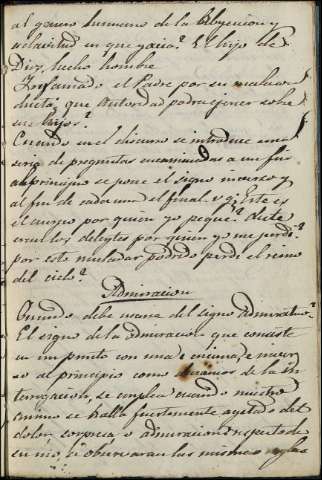 al genero humano de la Abyeccion y
esclavitud en que yacia? El hijo de
Dios, hecho hombre
Infamado el Padre por su mala con
ducta; que autoridad podra tener sobre
sus hijos?
Cuando en el discurso se introduce una
seria de preguntas encaminadas a un fin
al principio se pone el signo inverso y
al fin de cada una el final. v.g. Este es
el cuerpo por quien yo peque? Este
eran los deleytes por quien yo me perdi?
por este muladar podrido perdi el reino
del cielo?
Admiracion
Cuando debe usarse del signo admirativo?
El signo de la admiracion que consiste
en un punto con una encima, e inver
so al principio como diximos de la in
terrogacion, se emplea cuando nuestro
animo se halla fuertemente agitado del
dolor, sorpresa o admiracion respecto de
se observaran las mismas reglas